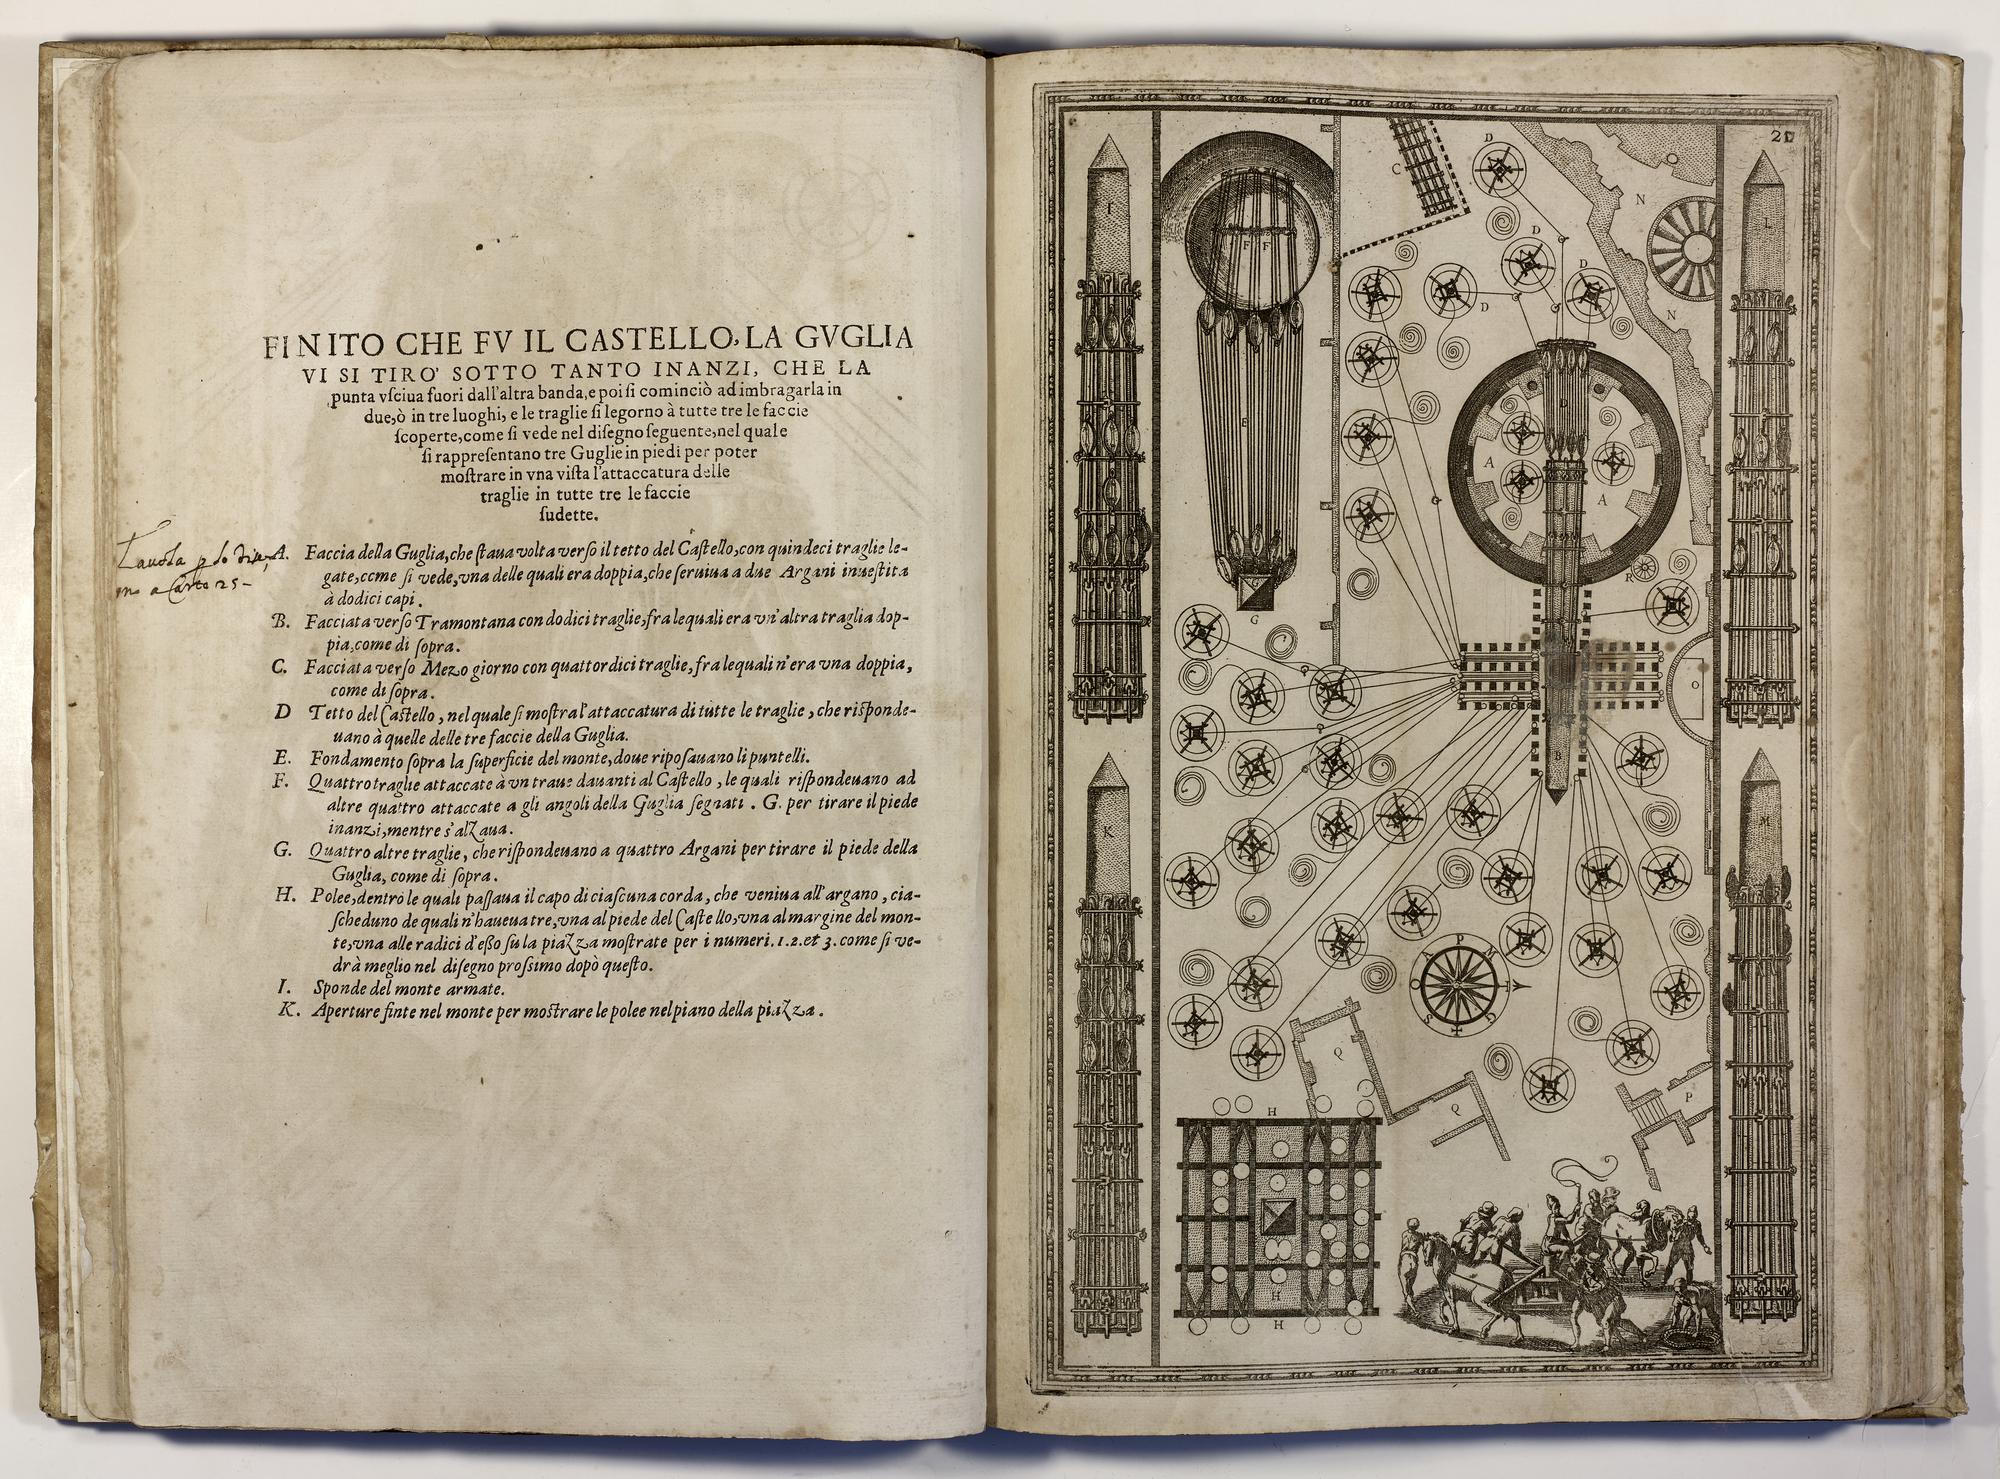 FINITO CHE FV IL CASTELLO, LA GVGLIA
VI SI TIRO' SOTTO TANTO INANZI, CHE LA
punta vſciua fuori dall'altra banda, e poi ſi cominciò ad imbragarla in
due, ò in tre luoghi, e le traglie ſi legorno à tutte tre le faccie
ſcoperte, come ſi vede nel diſegno ſeguente, nel quale
ſi rappreſentano tre Guglie in piedi per poter
moſtrare in vna viſta l'attaccatura delle
traglie in tutte tre le faccie
ſudette.
A. Faccia della Guglia, che ſtaua volta verſo il tetto del Caſtello, con quindeci traglie le-
gate, come ſi vede, vna delle quali era doppia, che ſeruiua a due Argani inueſtita
à dodici capi.
B. Facciata verſo Tramontana con dodici traglie, fra le quali era vn'altra traglia dop-
pia, come di ſopra.
C. Facciata verſo Mezo giorno con quattordici traglie, fra le quali n'era vna doppia,
come di ſopra.
D Tetto del Caſtello, nel quale ſi moſtra l'attaccatura di tutte le traglie, che riſponde-
uano à quelle delle tre faccie della Guglia.
E. Fondamento ſopra la ſuperficie del monte, doue ripoſauano li puntelli.
F. Quattro traglie attaccate à vn traue dauanti al Caſtello, le quali riſpondeuano ad
altre quattro attaccate a gli angoli della Guglia ſegnati. G. per tirare il piede
inanzi, mentre s'alzaua.
G. Quattro altre traglie, che riſpondeuano a quattro Argani per tirare il piede della
Guglia, come di ſopra.
H. Polee, dentro le quali paſſaua il capo di ciaſcuna corda, che veniua all'argano, cia-
ſcheduno de quali n'haueua tre, vna al piede del Caſtello, vna al margine del mon-
te, vna alle radici d'eßo ſu la piazza moſtrate per i numeri. 1. 2. et 3. come ſi ve-
drà meglio nel diſegno proſsimo dopò queſto.
I. Sponde del monte armate.
K. Aperture finte nel monte per moſtrare le polee nel piano della piazza.
a Carte 25
I
L
K
M
C
D
D
D
D
N
N
O
F F
E
G
D
A
A
R
O
B
P
M
Q
Q
P
H
H
H